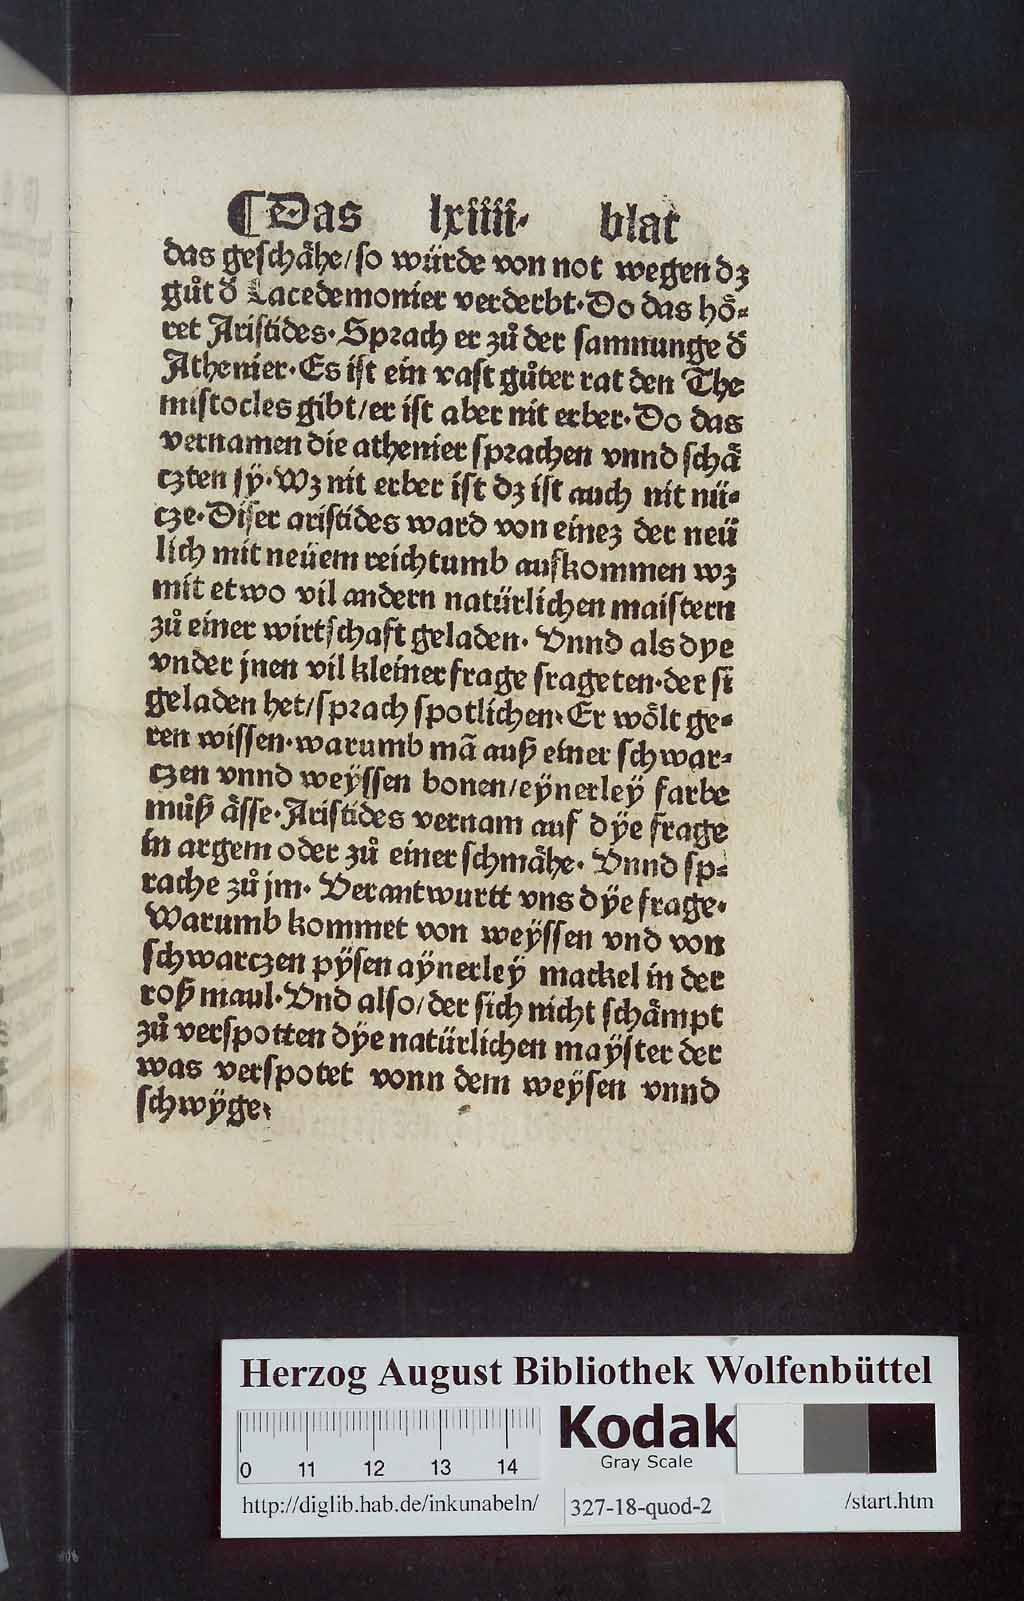 ¶Das lxiiii· blat
das geschåhe/so würde von not wegen dz
gůt d̕ Lacedemonier verderbt·Do das hö-
ret Aristides·Sprach er zů der samnunge d̕
Athenier·Es ist ein vast gůter rat den The
mistocles gibt/er ist aber nit erber·Do das
vernamen die athenier sprachen vnnd schä
czten sÿ·Wz nit erber ist dz ist auch nit nü-
cze·Diser aristides ward von einez der neü
lich mit neüem reichtumb aufkommen wz
mit etwo vil andern natürlichen maistern
zů einer wirtschaft geladen· Vnnd als dye
vnder jnen vil kleiner frage frageten·der si
geladen het/sprach spotlichen·Er wölt ge-
ren wissen·warumb mā auß einer schwar-
czen vnnd weÿssen bonen/eÿnerleÿ farbe
můß ässe·Aristides vernam auf dÿe frage
in argem oder zů einer schmähe· Vnnd sp-
rache zů jm· Verantwurtt vns dÿe frage·
Warumb kommet von weÿssen vnd von
schwarczen pÿsen aÿnerleÿ mackel in der
roß maul·Vnd also/der sich nicht schämpt
zů verspotten dÿe natürlichen maÿster der
was verspotet vonn dem weÿsen vnnd
schwÿge·
Herzog August Bibliothek Wolfenbüttel
0 11 12 13 14
Kodak
Gray Scale
http://diglib.hab.de/inkunabeln/ 327-18-quod-2 /start.htm